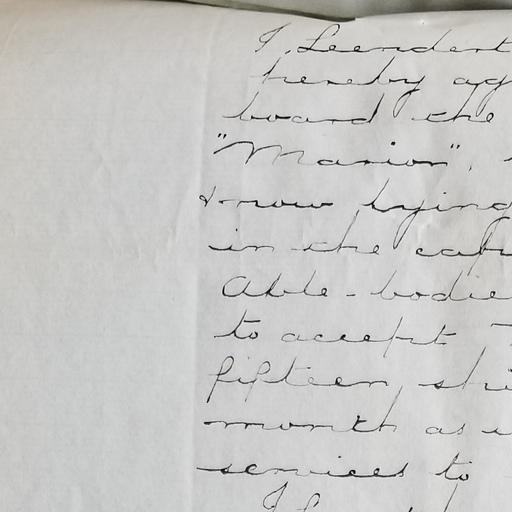 I, Leendert
hereby ag
board the
"Marion",
& now lying
in the cap
Able-bodie
to accept
fifteen shi
month as
services to